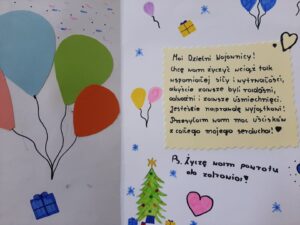 Moi Dzielni Wojownicy!
Chcę wam życzyć wciąż tak
wspaniałej siły i wytrwałości,
abyście zawsze byli radośni,
odważni i zawsze uśmiechnięci.
Jesteście naprawdę wyjątkowi!
Przesyłam wam moc uścisków
z całego mojego serducha! ♥
Ps. Życzę wam powrotu
do zdrowia!♥